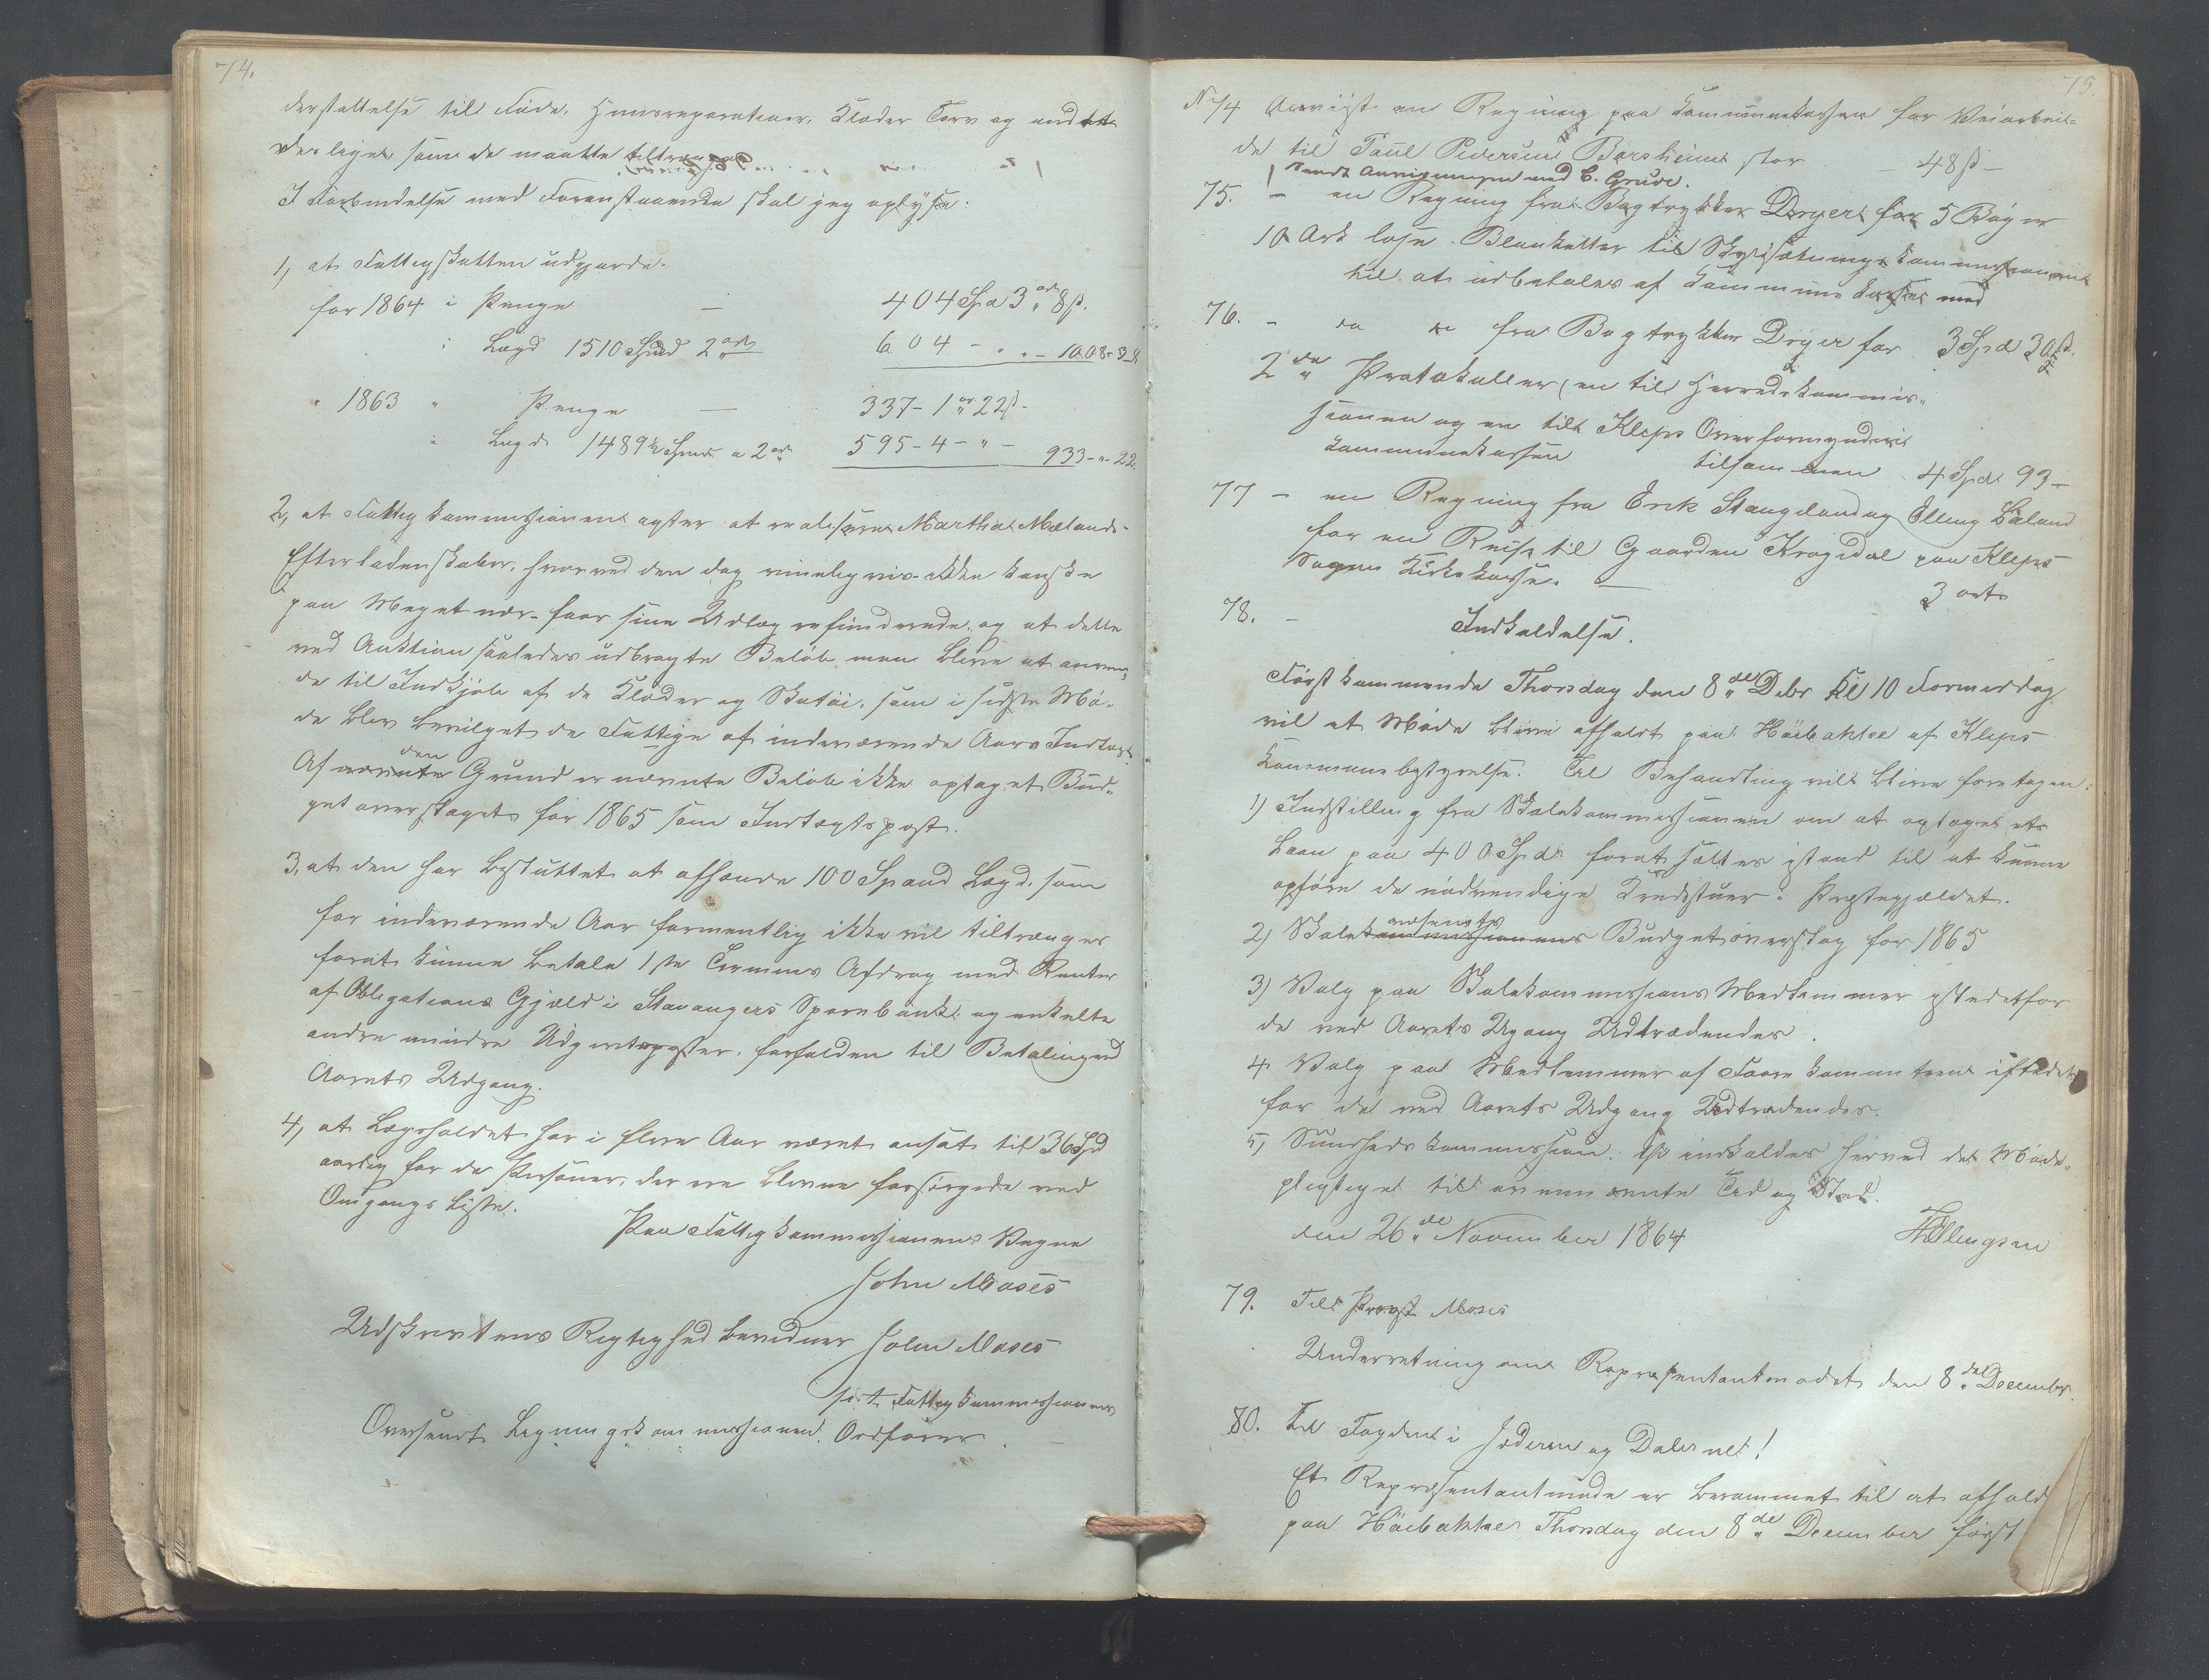 74.
derstøttelse til Føde, Huusreparationer, Klæder Torv og andet
desliget som de maatte tiltrænge
I Forbindelse med Foranstaaende skal jeg oplyse:
1, at Fattigskatten udgjorde.
for 1864 i Penge — 404 Spd 3 ort 8 ß.
" Lægd 1510 Spand 2 ort 604 - " - 1008-3-8
" 1863 " Penge — 337- 1 ort 22 ß -
" Lægd 1489½ Spand a 2 ort 595-4- " - 933-"-22.
2, at Fattigkommissionen agter at realisere Martha Mælands
Efterladenskaber, hvorved den dog rimeligviis ikke kanske
paa Meget nær faar sine Udlæg refunderede, og at dette
ved Auktion saaledes udbragte Beløb maa blive at anven-
de til Indkjøb af de Klæder og Skotøi, som i sidste Mø-
de blev bevilget de Fattige af indeværende Aars Indtægt.
Af den Grund er nævnte Beløb ikke optaget Bud-
getoverslaget for 1865 som Indtægtspost.
3, at den har besluttet at afhænde 100 Spand Lægd, som
for indeværende Aar formentlig ikke vil tiltrænges
forat kunne betale 1ste Termins Afdrag med Renter
af Obligations Gjæld i Stavangers Sparebank og enkelte
andre mindre Udgiftsposter, forfalden til Betaling ved
Aarets Udgang.
4, at Lægsholdet har i flere Aar været ansat til 36 Spd
aarlig for de Personer, der ere blevne forsørgede ved
Omgangs Liste.
Paa Fattigkommissionens Vegne
John Moses
Udskriftens Rigtighed bevidner John Moses
p. t. Fattigkommissionens
Oversendt Ligningskommissionens Ordfører —
75.
N 74 Anviist en Regning paa Kommunekassen for Veiarbei-
de til Paul Pedersen Borsheim stor — 48 ß —
Sendt Anvisningen med C. Grude.
75. — en Regning fra Bogtrykker Dryer for 5 Bøger
10 Ark løse Blanketter til Skyldsætningskommissionen
til at udbetales af Kommunekassen med
3 Spd 30 ß.
76. — en do fra Bogtrykker Dryer for
2de Protokoller (en til Herredskommis-
sionen og en til Kleps Overformynderi
Kommunekassen tilsammen 4 Spd 93 —
77 — en Regning fra Erik Stangeland og Elling Laland
for en Reise til Gaarden Krogedal paa Kleps
Sogns Kirkekasse. — 3 ort
78. — Indkaldelse.
Førstkommende Thorsdag den 8de Debr Kl 10 Formiddag
vil et Møde blive afholdt paa Häibakke af Kleps
Kommunebestyrelse. Til Behandling vil blive foretagen:
1) Indstilling fra Skolekommissionen om at optages et
Laan paa 400 Spd forat sættes istand til at kunne
opføre de nødvendige Kredsstuer i Præstegjældet.
2) Skolevæsenets Budgetoverslag for 1865
3) Valg paa Skolekommissions Medlemmer istedetfor
de ved Aarets Ugang Udtrædendes.
4 Valg paa Medlemmer af istedet
for de ved Aarets Udgang Udtrædendes.
5, Sundhedskommission. Thi indkaldes herved de Møde-
pligtige til ovennævnte Tid og Sted.
den 26de November 1864
79. Til Provst Moses
Underretning om Repræsentantmødet den 8de December.
80. Til Fogden i Jæderen og Dalerne!
Et Repræsentantmøde er berammet til at afhold
paa Häibakke Thorsdag den 8de December først